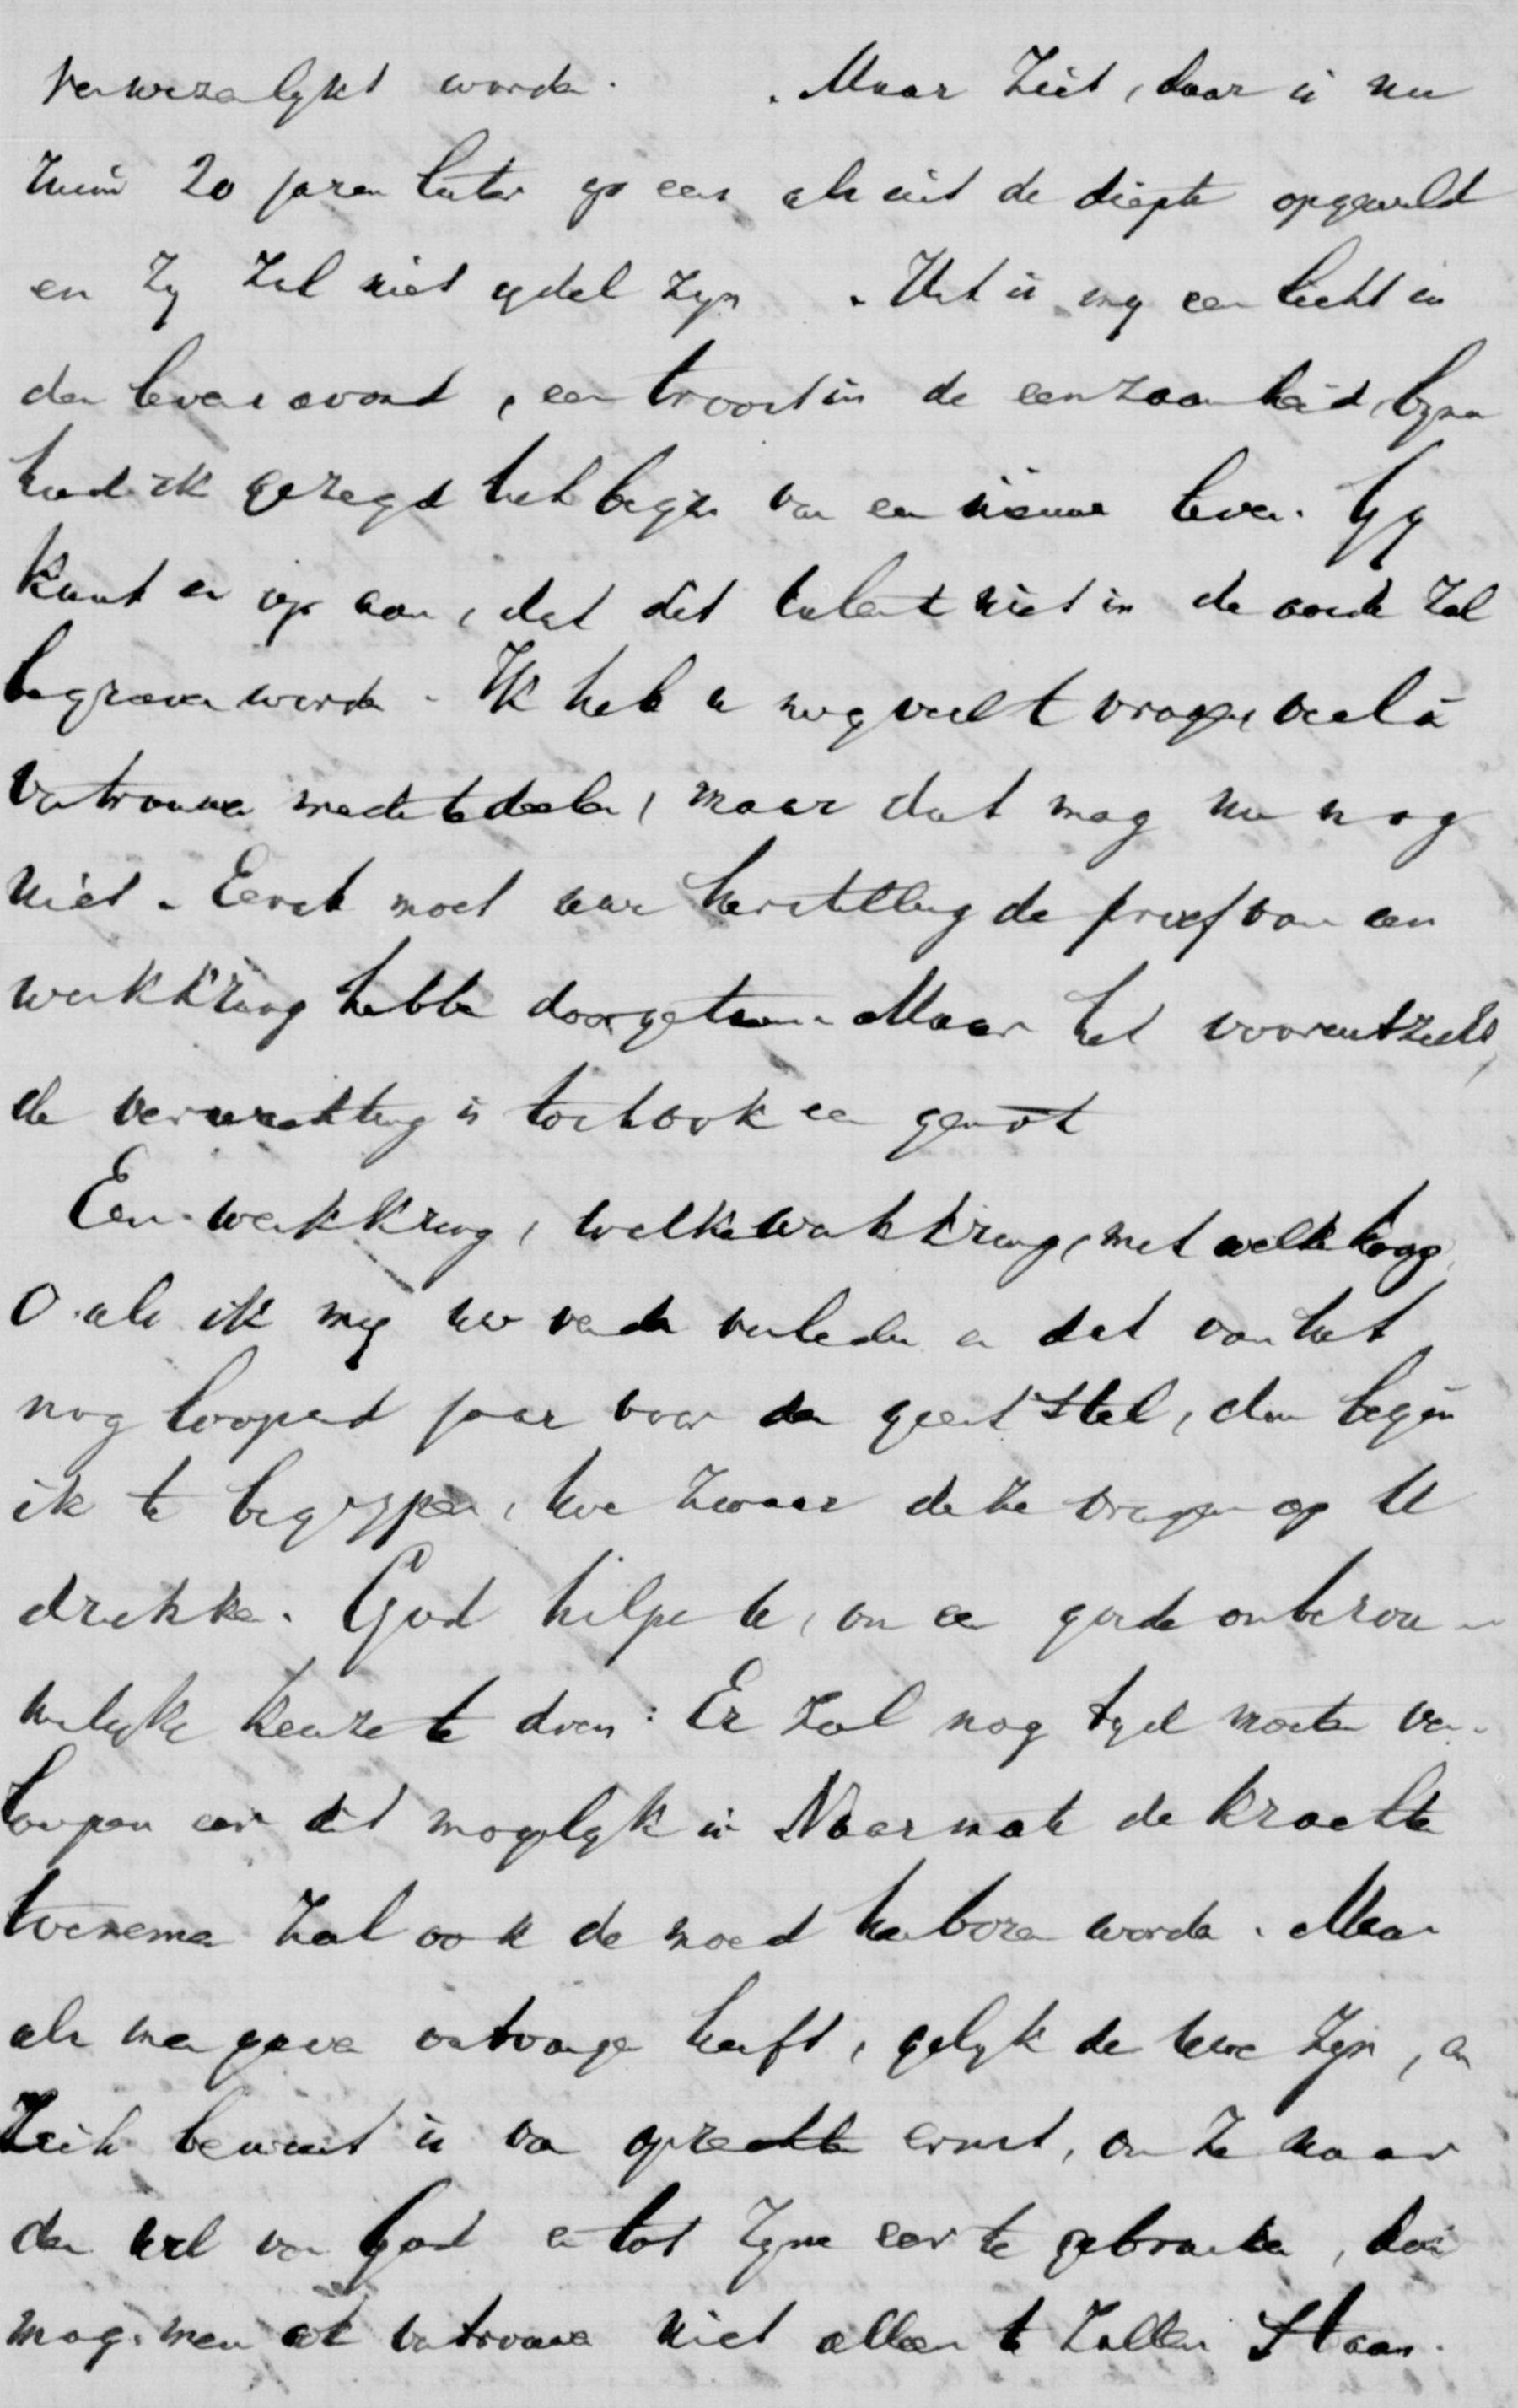 verwezenlykt worden. . Maar ziet, daar is nu
ruim 20 jaren later op eens als uit de diepte opgeweld
en zy zal niet ydel zyn . Het is my een licht in
den levensavond, een troost in de eenzaamheid, byna
had ik gezegd het begin van een nieuw leven. Gy
kunt er op aan, dat dit talent niet in de aarde zal
begraven worden. Ik heb u nog veel te vragen, veel in
vertrouwen mede te deelen, maar dat mag nu nog
niet. Eerst moet uwe herstelling de proef van een
werkkring hebben doorgestaan. Maar het vooruitzicht,
de verwachting is toch ook een genot
Een werkkring, welke werkkring, met welke
O als ik my uw verder verleden en dat van het
nog loopend jaar voor den geest stel, dan begin
ik te begrypen, hoe zwaar deze vragen op U
drukken. God helpe U, om een goede onberou-
welyke keuze te doen: Er zal nog tyd moeten ver-
loopen eer dit mogelyk is Naarmate de krachten
toenemen zal ook de moed herboren worden. Maar
als men gaven ontvangen heeft, gelyk de uwe zyn, en
zich bewust is van oprechten ernst, om ze naar
den wil van God en tot Zyne eer te gebruiken, dan
mag men ook vertrouwen niet alleen te zullen staan.